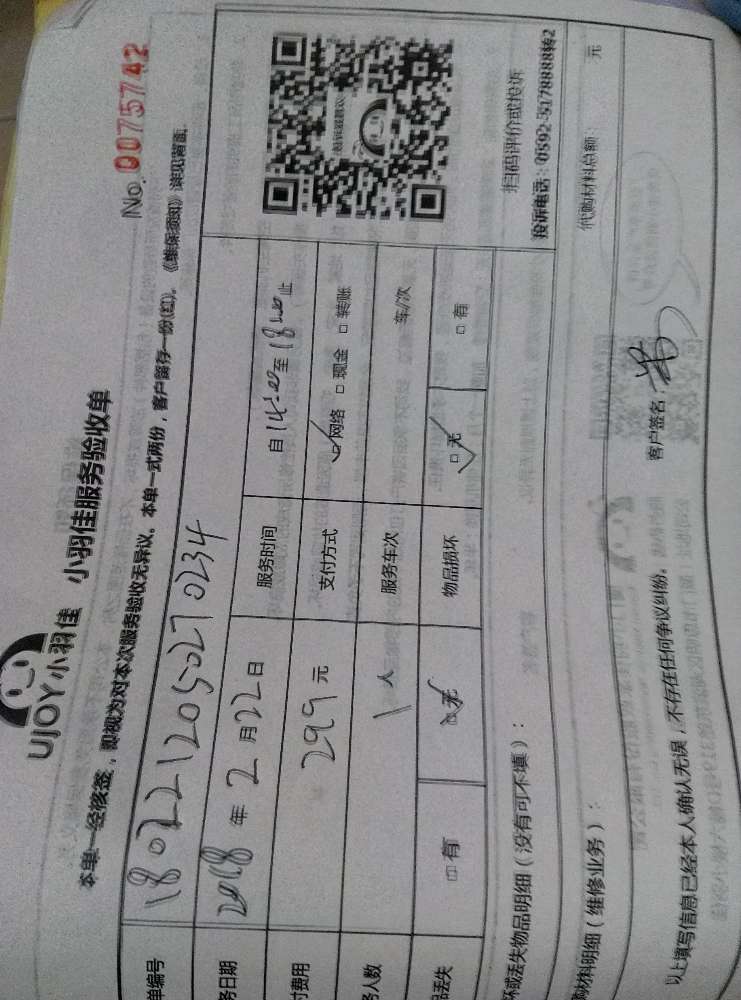 UJOY小羽佳 小羽佳服务验收单
No.0075742
本单一经核签，即视为对本次服务验收无异议。本单一式两份，客户留存一份(红)。《维保须知》详见背面。
单编号 1802212050270234
务日期 2018 年 2 月 22 日 服务时间 自 14:00 至 18:00 止
付费用 299 元 支付方式 ☑网络 □现金 □转账
务人数 1 人 服务车次 车/次
品丢失 □有 ☑无 物品损坏 ☑无 □有
扫码评价或投诉
投诉电话：0592-5178888转2
坏或丢失物品明细（没有可不填）：
购材料明细（维修业务）： 代购材料总额： 元
以上填写信息已经本人确认无误，不存在任何争议纠纷。 客户签名：